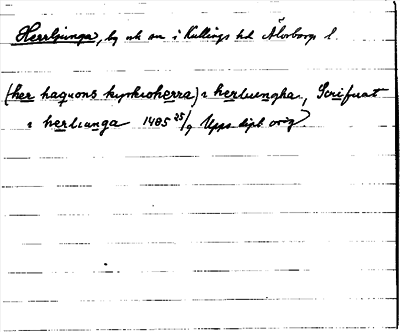 Herrljunga, by och sn i Kullings hd Älvsborgs l.
(her haquons kyrkioherra) i herliungha, Scrifuat
i herliunga 1485 25/9 Upps dipl orig